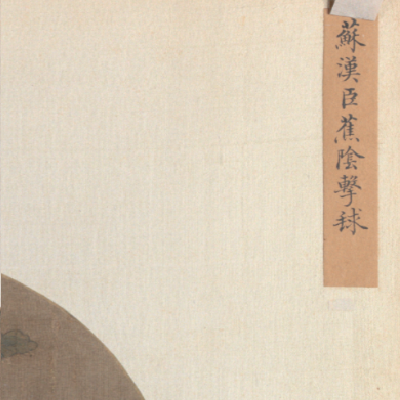 蘇漢臣蕉陰擊球